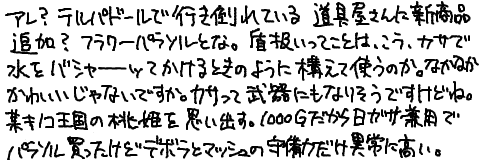 アレ?テルパドールで行き倒れている道具屋さんに新商品
追加?フラワーパラソルとな。盾扱いってことは、こう、カサで
水をバシャーーッてかけるときのように構えて使うのか。なかなか
かわいいじゃないですか。カサって武器にもなりそうですけどね。
某キノコ王国の桃姫を思い出す。1000Gだから日ガサ兼用で
パラソル買ったけどデボラとマッシュの守備力だけ異常に高い。